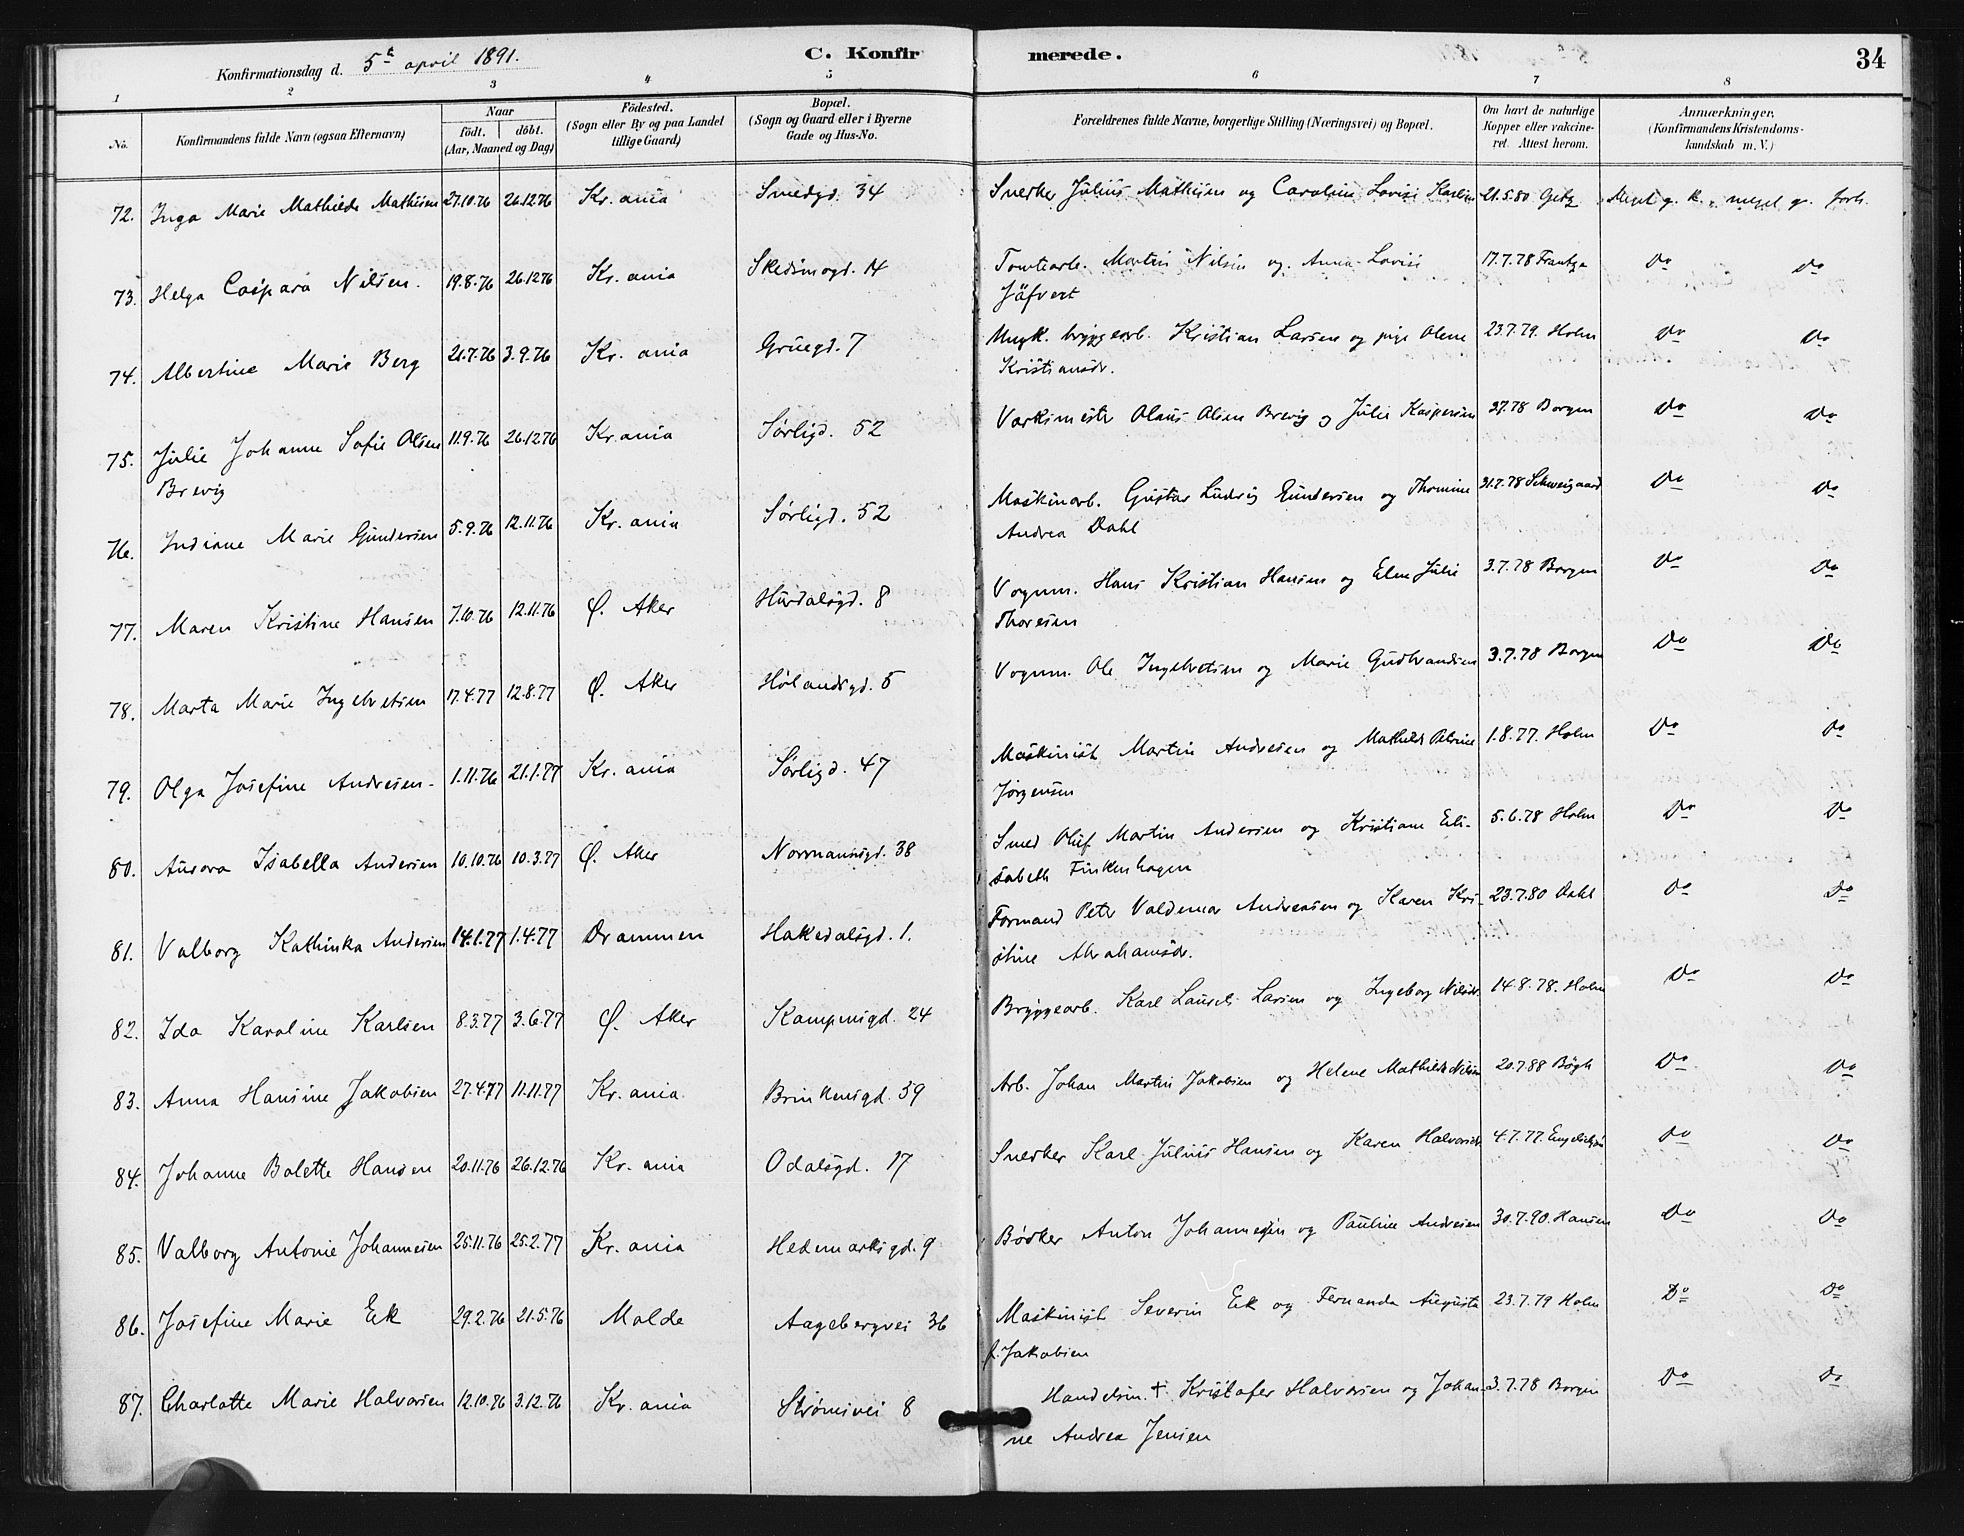 Konfirmationsdag d. 5te april 1891. C. Konfirmerede. 34
1 2 3 4 5 6 7 8
No. Konfirmandens fulde Navn (ogsaa Efternavn) Naar födt. döbt. (Aar, Maaned og Dag) Födested. (Sogn eller By og paa Landet tillige Gaard) Bopæl. (Sogn og Gaard eller i Byerne Gade og Hus-No. Forældrenes fulde Navne, borgerlige Stilling (Næringsvei) og Bopæl. Om havt de naturlige Kopper eller vakcineret. Attest herom. Anmærkninger. (Konfirmandens Kristendomskundskab m. V.)
72. Inga Marie Mathilde Mathisen 27.10.76 26.12.76 Kr.ania Smedgd. 34 Snedker Julius Mathisen og Caroline Lovise Karlsen 21.5.80 Getz Meget g. k., meget g. forh.
73. Helga Caspara Nilsen. 19.8.76 26.12.76 Kr. ania Skedsmogd. 14 Tomtearb. Martin Nilsen og Anna Lovise 17.7.78 Do Do
Jäfvert
74. Albertine Marie Berg 21.7.76 3.9.76 Kr. ania Gruegd. 7 Ungk. bryggearb. Kristian Larsen og pige Olene 23.7.79. Holm Do Do
Kristiansdr.
75. Julie Johanne Sofie Olsen 11.9.76 26.12.76 Kr.ania Sørligd. 52 Værksmester Olaus Olsen Brevig og Julie Kaspersen 3.7.78 Borgen Do Do
Brevig
76. Indiane Marie Gundersen 5.9.76 12.11.76 Kr. ania Sørligd. 52 Maskinarb. Gustav Ludvig Gundersen og Thomine 31.7.78 Schweigaard Do Do
Andrea Dahl
77. Maren Kristine Hansen 7.10.76 12.11.76 Ø. Aker Hurdalsgd. 8 Vognm. Hans Kristian Hansen og Elen Julie 3.7.78 Borgen Do Do
Thoresen
78. Marta Marie Ingebretsen 17.4.77 12.8.77 Ø. Aker Hølandsgd. 5 Vognm. Ole Ingebretsen og Marie Gudbrandsen 3.7.78 Borgen Do Do
79. Olga Josefine Andresen 1.11.76 21.1.77 Kr. ania Sørligd. 47 Maskinist Martin Andresen og Mathilde Petrine 1.8.77. Holm Do Do
Jørgensen
80. Aurora Isabella Andersen 10.10.76 10.3.77 Ø. Aker Normannsgd. 38 Smed Oluf Martin Andersen og Kristiane Eli- 5.6.78 Holm Do Do
sabeth Finkenhagen
81. Valborg Kathinka Andersen 14.1.77 1.4.77 Drammen Hakedalsgd. 1. Formand Peter Valdemar Andreasen og Karen Kri- 23.7.80 Dahl Do Do
stine Abrahamsdr.
82. Ida Karoline Karlsen 8.3.77 3.6.77 Ø. Aker Kampensgd. 24 Bryggearb. Karl Larsen og Ingeborg Nilsdr. 14.8.78. Holm Do Do
83. Anna Hansine Jakobsen 27.4.77 11.11.77 Kr. ania Brinkensgd. 39 Arb. Johan Martin Jakobsen og Helene Mathilde Nilsen 20.7.88 Bögh Do Do
84. Johanne Bolette Hansen 20.11.76 26.12.76 Kr. ania Odalsgd. 17 Snedker Karl Julius Hansen og Karen Halvorsdr. 4.7.77. Do Do
85. Valborg Antonie Johannesen 25.11.76 25.2.77 Kr. ania Hedemarksgd. 9 Bødker Anton Johannesen og Pauline Andresen 30.7.90. Hansen Do Do
86. Josefine Marie Eek 29.2.76 21.5.76 Molde Aagebergvei 36 Maskinist Severin Eek og Fernanda Augusta 23.7.79 Holm Do Do
f. Jakobsen
87. Charlotte Marie Halvorsen 12.10.76 3.12.76 Kr. ania Strømsvei 8 Handelsm. + Kristofer Halvorsen og Johan- 3.7.78 Borgen Do Do
ne Andrea Jensen